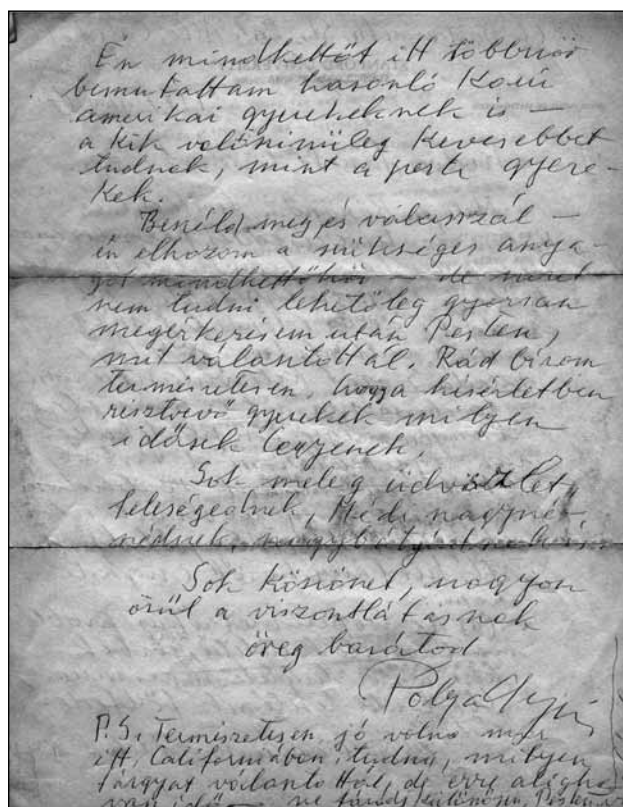 Én mindkettőt itt többször
bemutattam hasonló korú
amerikai gyerekeknek is —
a kik valószinüleg kevesebbet
tudnek, mint a pesti gyere-
kek.
Beszéld meg és válasszál —
én elhozom a szükséges anya-
got mindkettőhöz — de
nem tudni lehetőleg gyorsan
megérkezésem után Pesten,
mit választottál. Rád bízom
természetesen, hogy a kisérletben
résztvevő gyerekek milyen
idősek legyenek.
Sok meleg üdvözlet
feleségednek, Hédi nagyné-
nédnek,
Sok köszönet, nagyon
örül a viszontlátásnek
öreg barátod
Pólya Gyuri
P.S. Természetesen jó volna már
itt, Californiában tudna, milyen
tárgyat választottál, de erre aligha
van idő — ne